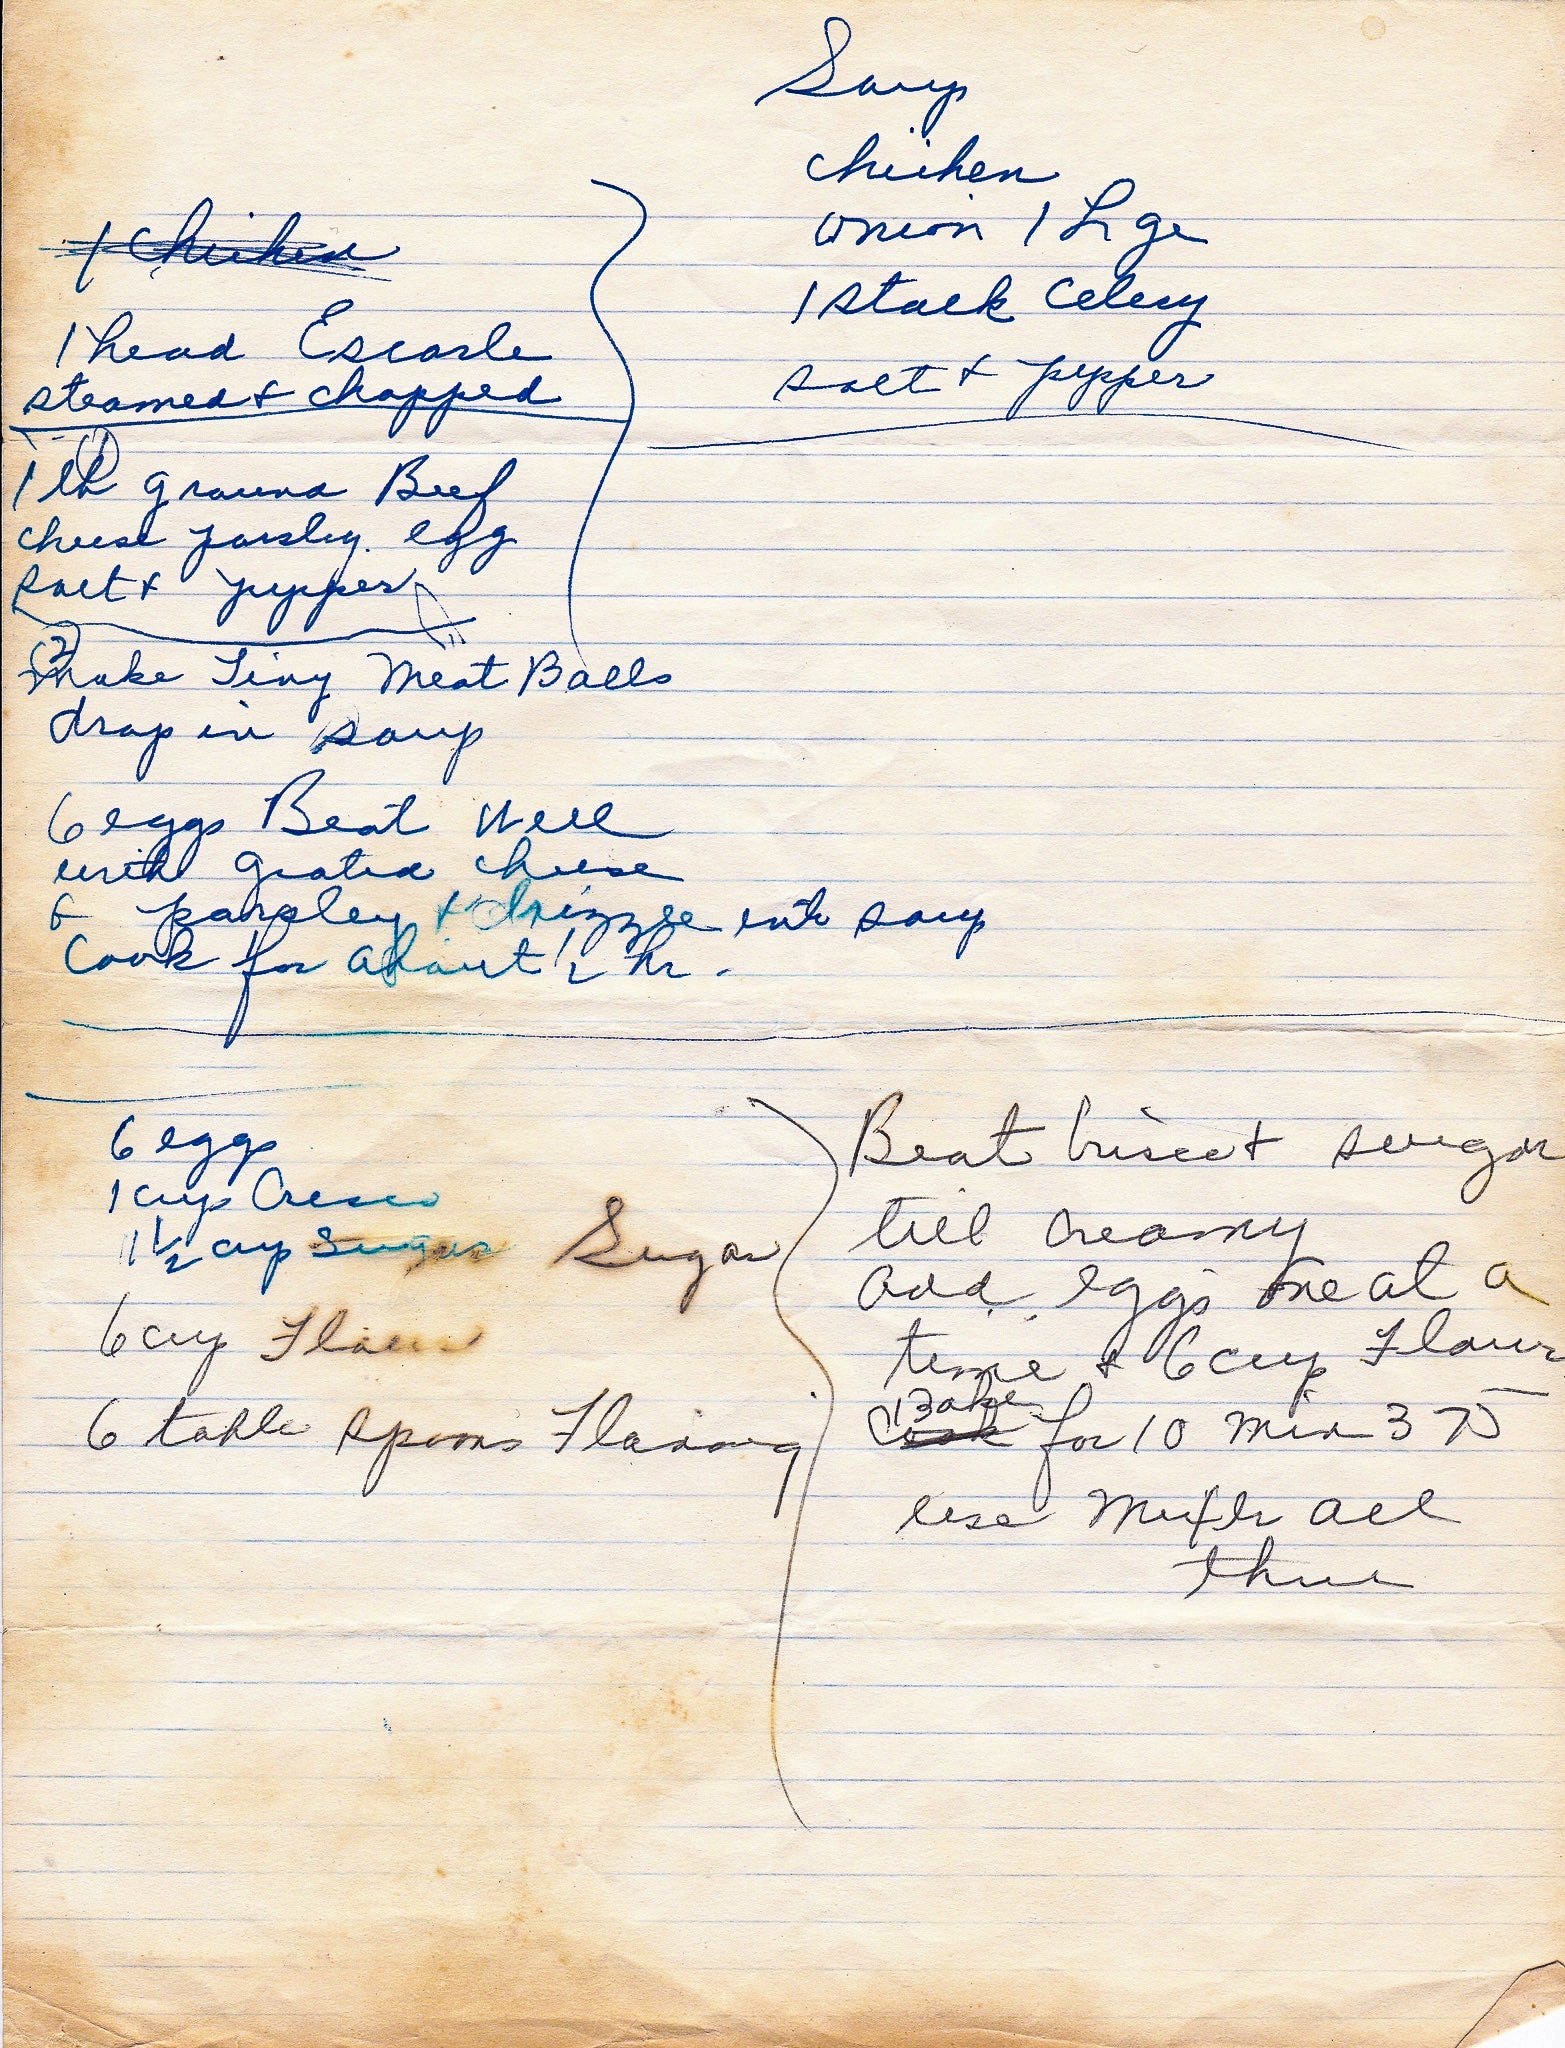 Soup
chicken
onion 1 Lrge
1 stalk Celery
salt & pepper
1 Chicken
1 head Escarle
steamed & chopped
(1)
1 lb ground Beef
cheese parsley. egg
salt & pepper
(2)
make Tiny Meat Balls
drop in soup
6 eggs Beat Well
with grated cheese
& parsley & drizzle into soup
Cook for about 1/2 hr.
6 eggs
1 cup Cresco
1 1/2 cup Sugar Sugar
6 cup Flour
6 table spoons Flavoring
Beat Crisco & sugar
till creamy
add eggs one at a
time & 6 cup Flour
Cook Bake for 10 min 375
use Mixer all
thru